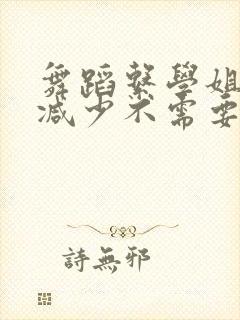 舞蹈繫學姐
減少不需要
詩無邪